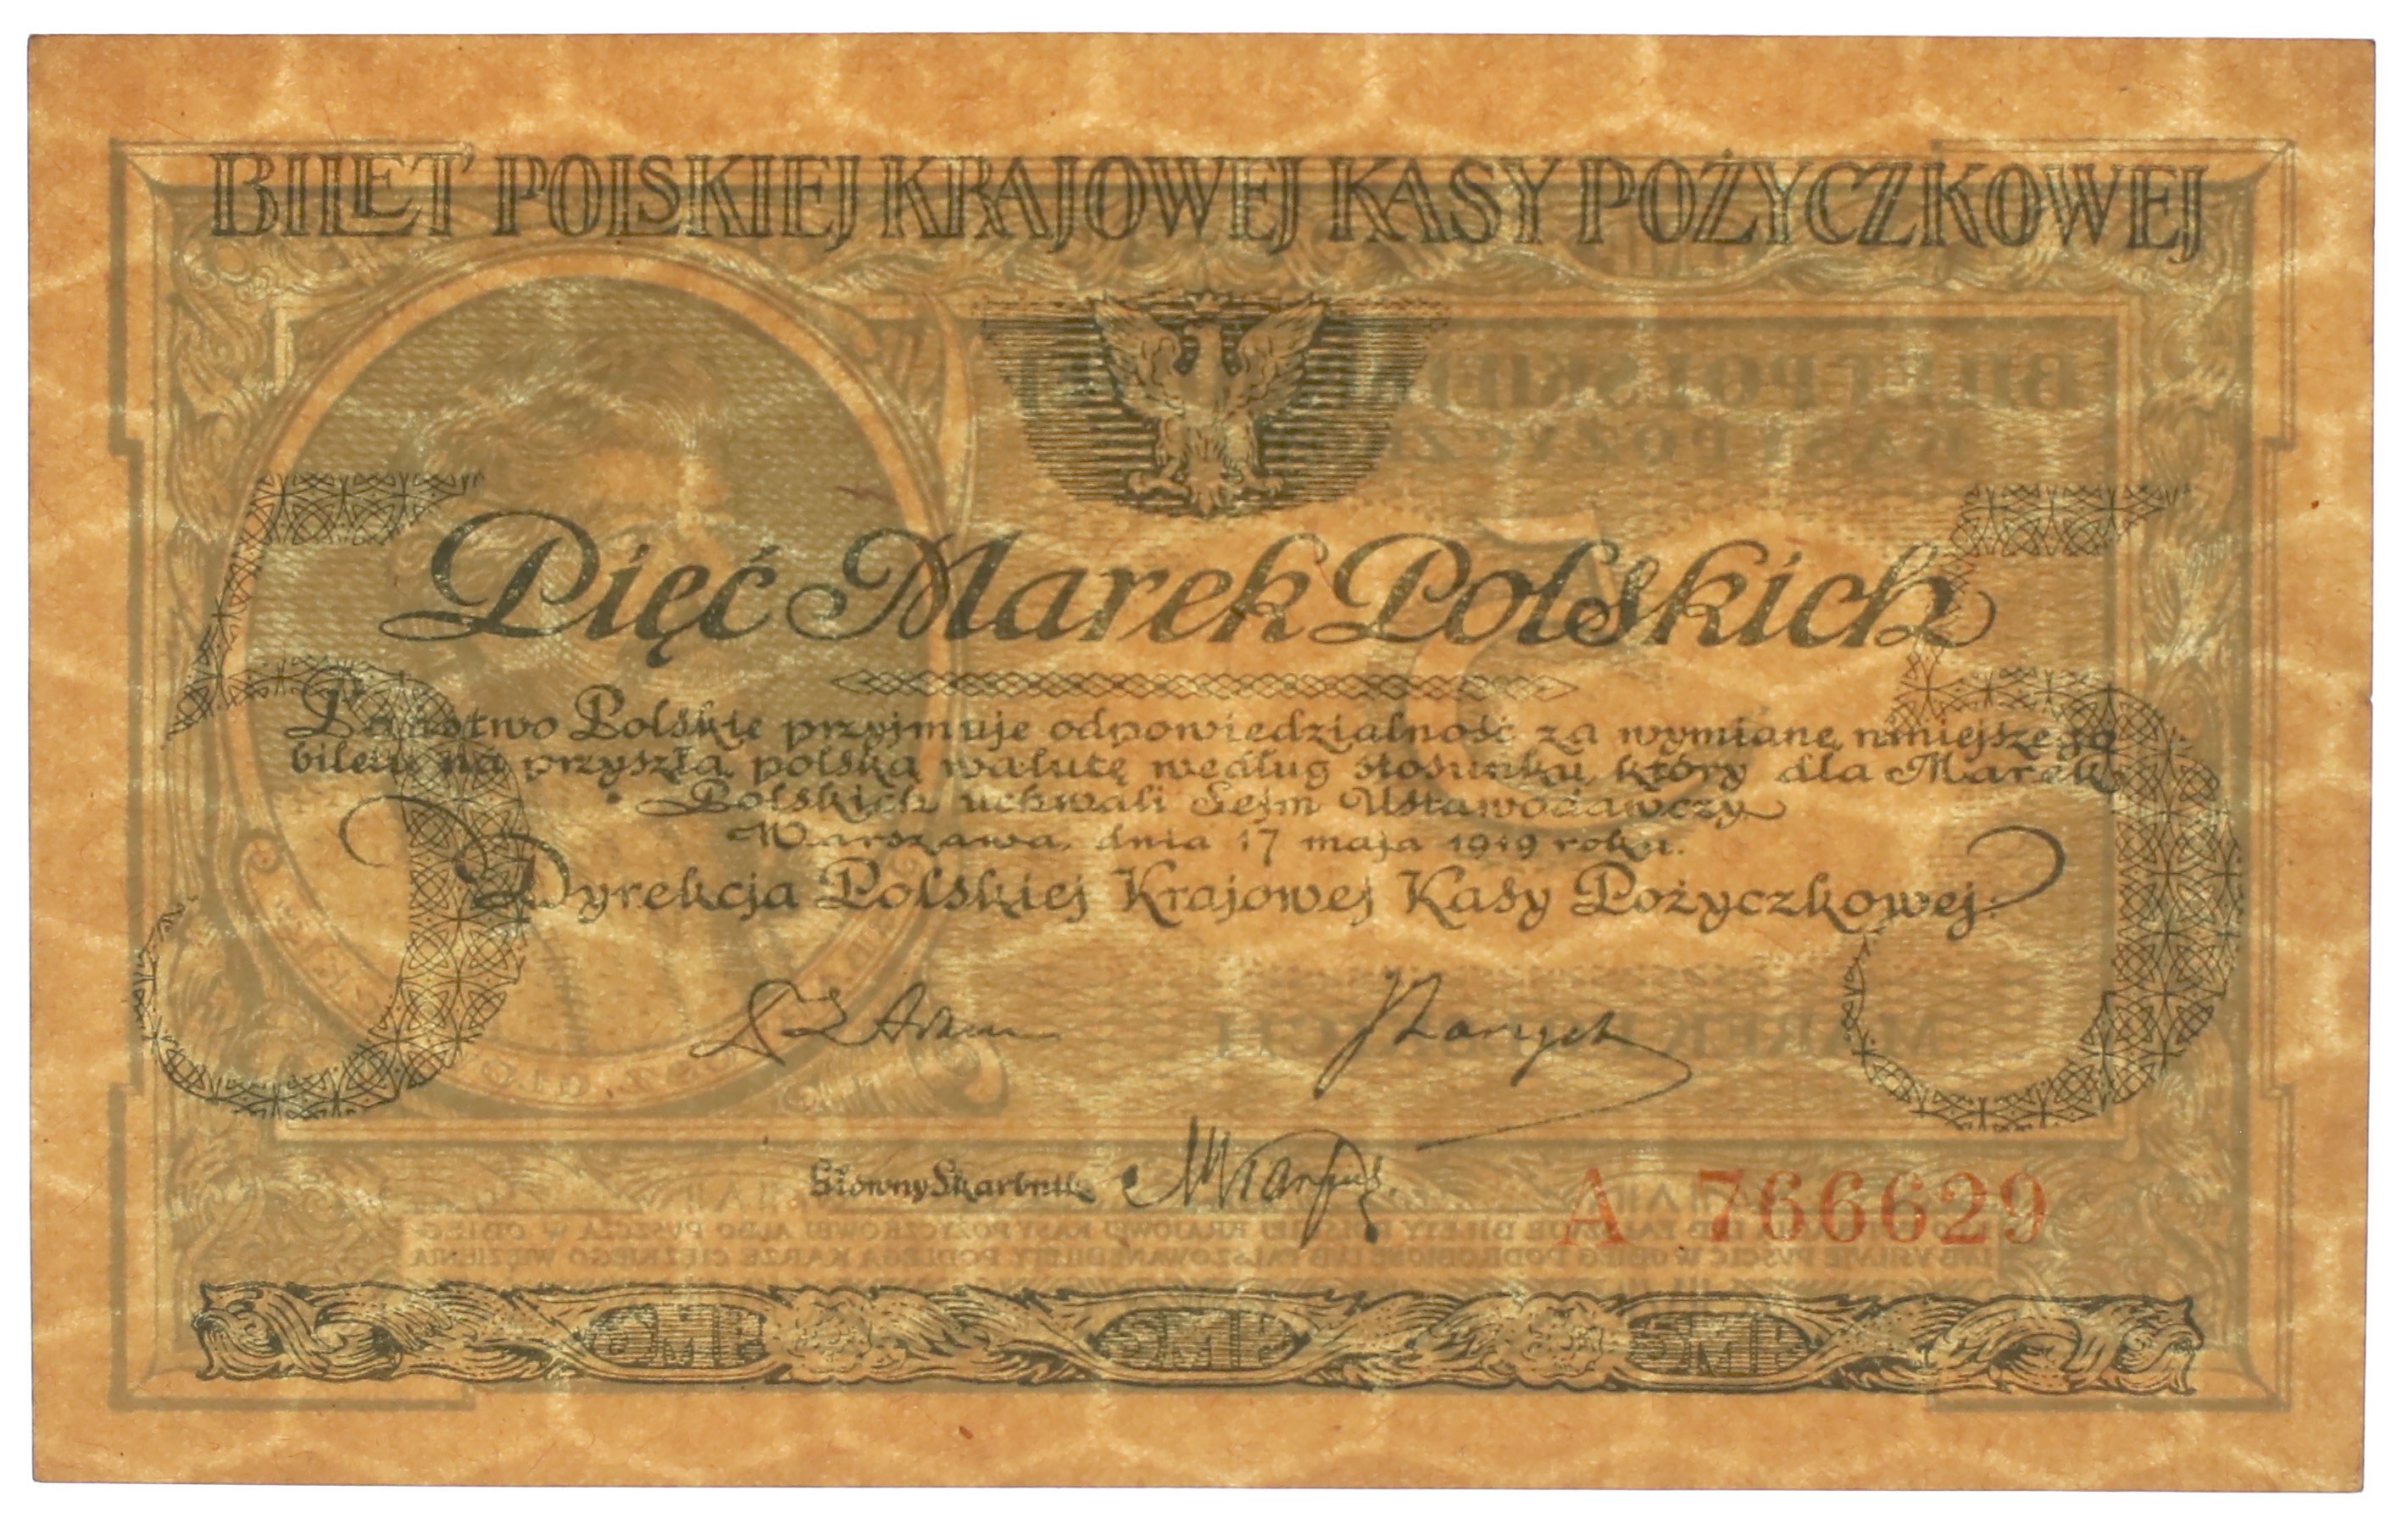 BILET POLSKIEJ KRAJOWEJ KASY POŻYCZKOWEJ
Pięć Marek Polskich
Państwo Polskie przyjmuje odpowiedzialność za wymianę niniejszego
biletu na przyszłą polską walutę według stosunku, który dla Marek
Polskich uchwali Sejm Ustawodawczy
Warszawa, dnia 17 maja 1919 roku.
Dyrekcja Polskiej Krajowej Kasy Pożyczkowej.
Główny Skarbnik
A 766629
5MP 5MP 5MP